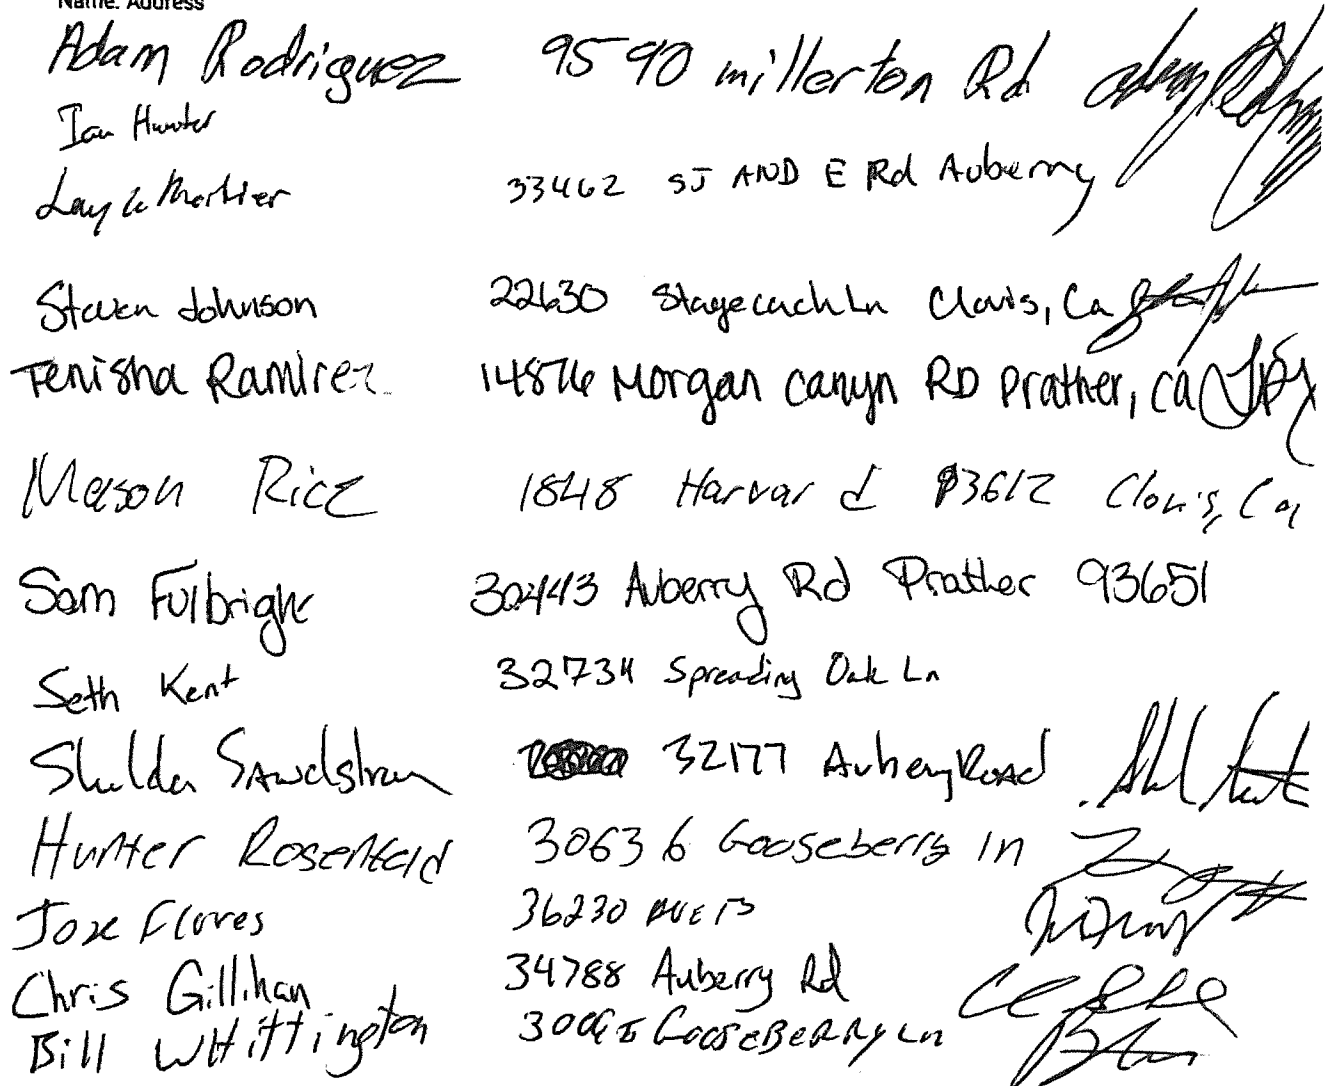 Name. Address
Adam Rodriguez 9590 millerton Rd
Ian Hunter
33462 SJ AND E Rd Auberry
Steven Johnson 22630 Stagecach Ln Clovis, Ca
Tenisha Ramirez 14876 Morgan canyn RD Prather, ca
Mason Rice 1848 Harvard 93612 Clovis, Ca
Sam Fulbright 30443 Auberry Rd Prather 93651
Seth Kent 32734 Spreading Oak Ln
32177 Auberry Road
Hunter Rosenfeld 30636 Gooseberry ln
Jose Flores 36230
Chris Gillihan 34788 Auberry Rd
Bill WHittington GooseBeRRy Ln